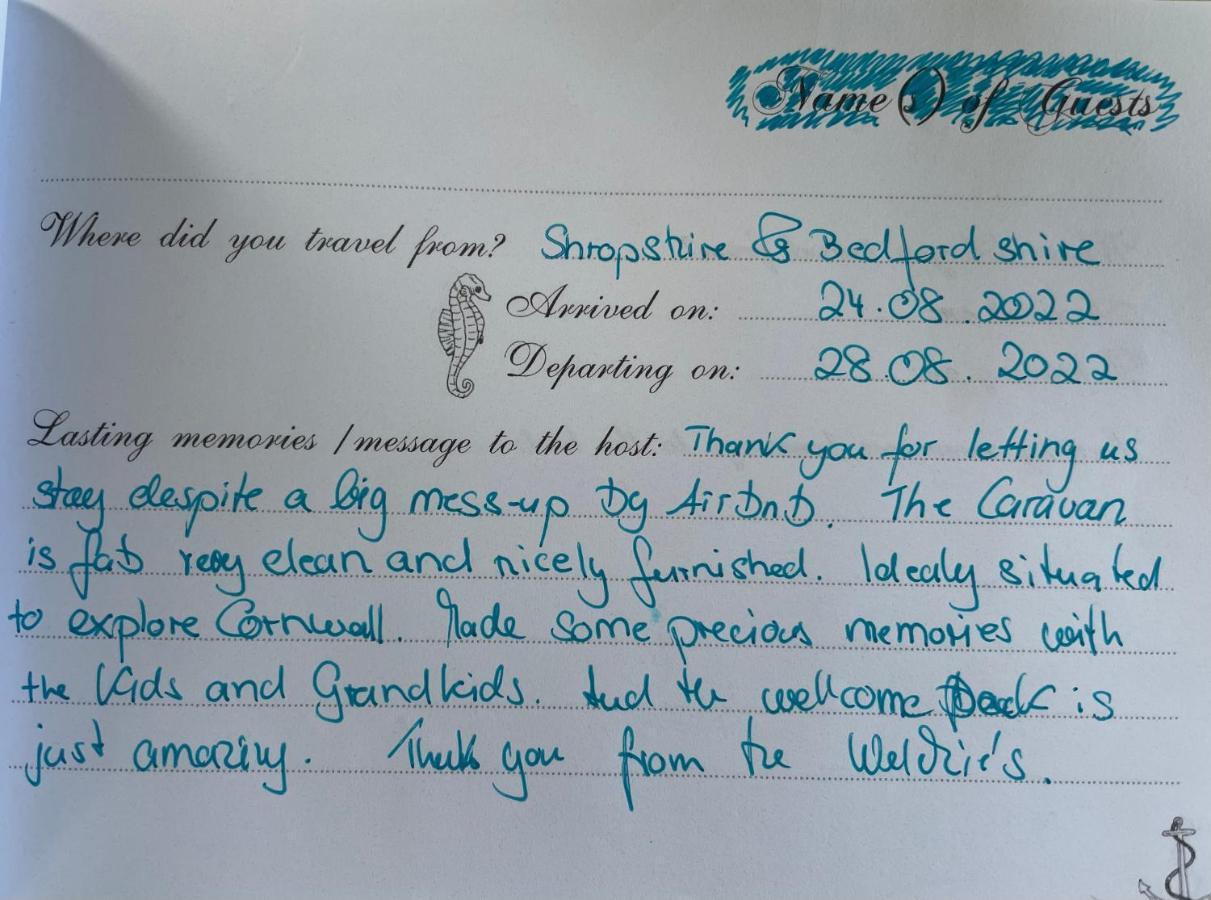 Name(s) of Guests
Where did you travel from? Shropshire & Bedfordshire
Arrived on: 24.08.2022
Departing on: 28.08.2022
Lasting memories / message to the host: Thank you for letting us
stay despite a big mess-up by AirBnB. The Caravan
is fab very clean and nicely furnished. Idealy situated
to explore Cornwall. Made some precious memories with
the Kids and Grandkids. And the wellcome pack is
just amazing. Thank you from the